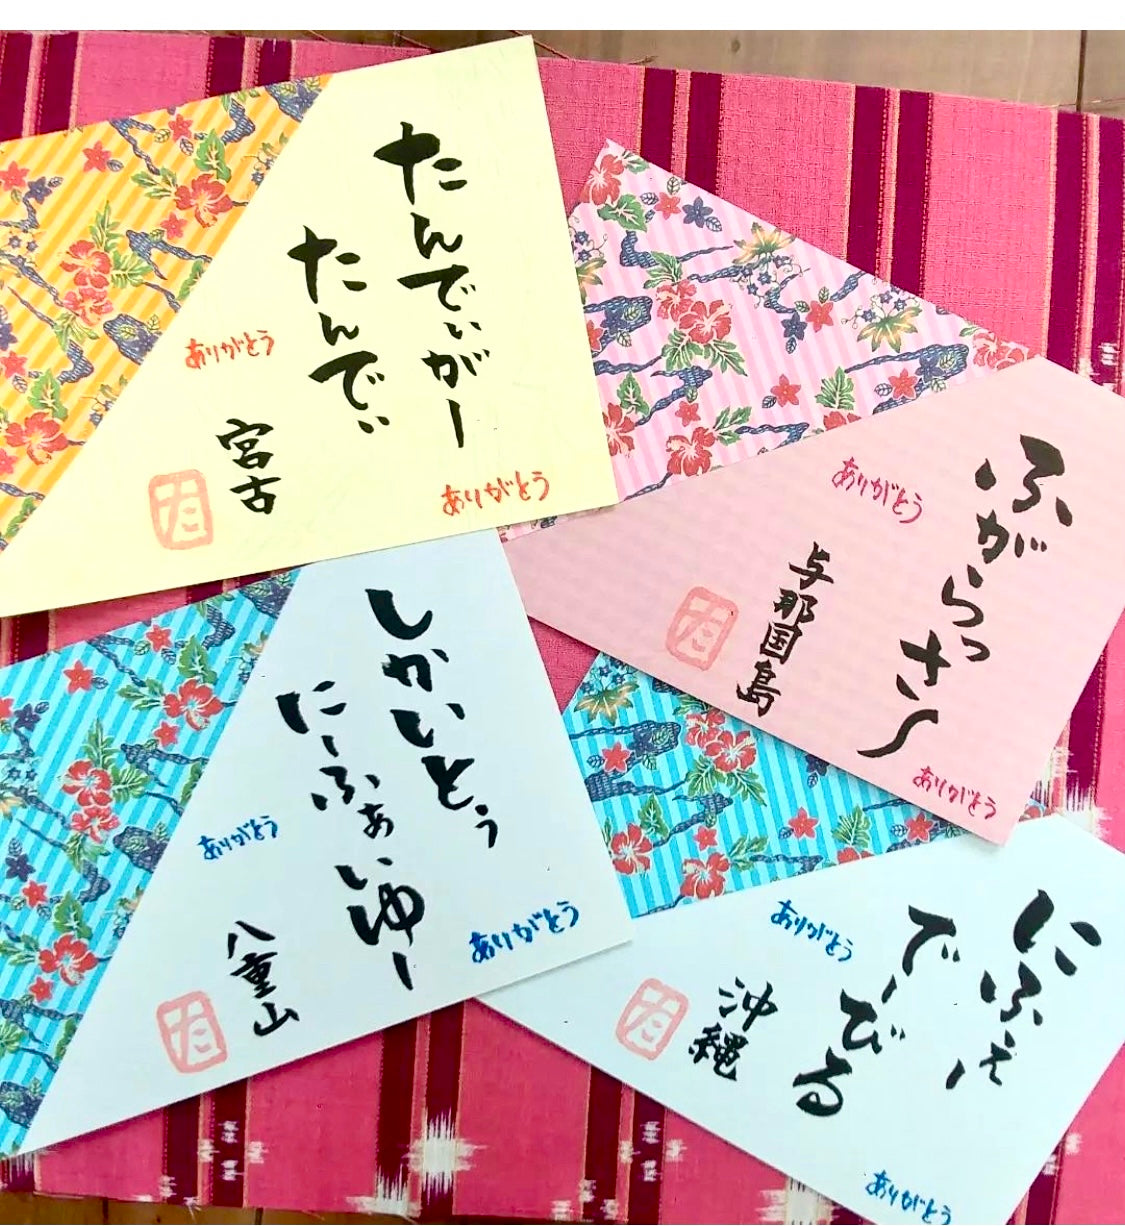 たんでぃがー
たんでぃ
ありがとう
ありがとう
宮古
た
ふがらっさー
ありがとう
ありがとう
与那国島
た
しかいとぅ
にーふぁいゆー
ありがとう
ありがとう
八重山
た
にふぇー
でーびる
ありがとう
ありがとう
沖縄
た